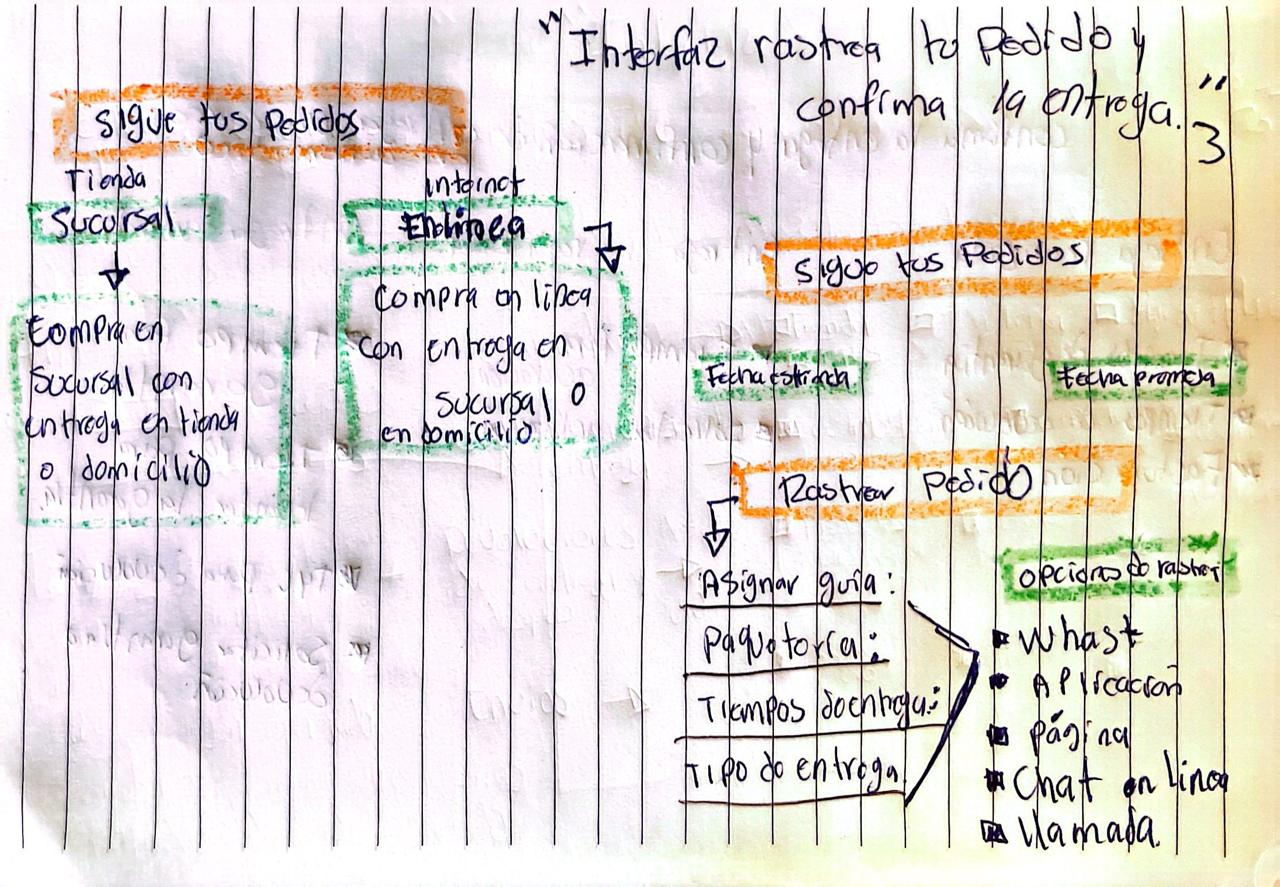 "Interfaz rastrea tu pedido y
confirma la entrega."
3
Sigue tus pedidos
Tienda
Sucursal
Compra en
Sucursal con
entrega en tienda
o domicilio
internet
En linea
Compra en linea
con entrega en
sucursal o
en domicilio
Sigue tus Pedidos
Fecha estimada
Fecha promesa
Rastrear Pedido
Asignar guía:
Paquetoría:
Tiempos de entrega:
Tipo de entrega
opciones de rastreo
Whast
Aplicación
Página
Chat en linea
llamada.